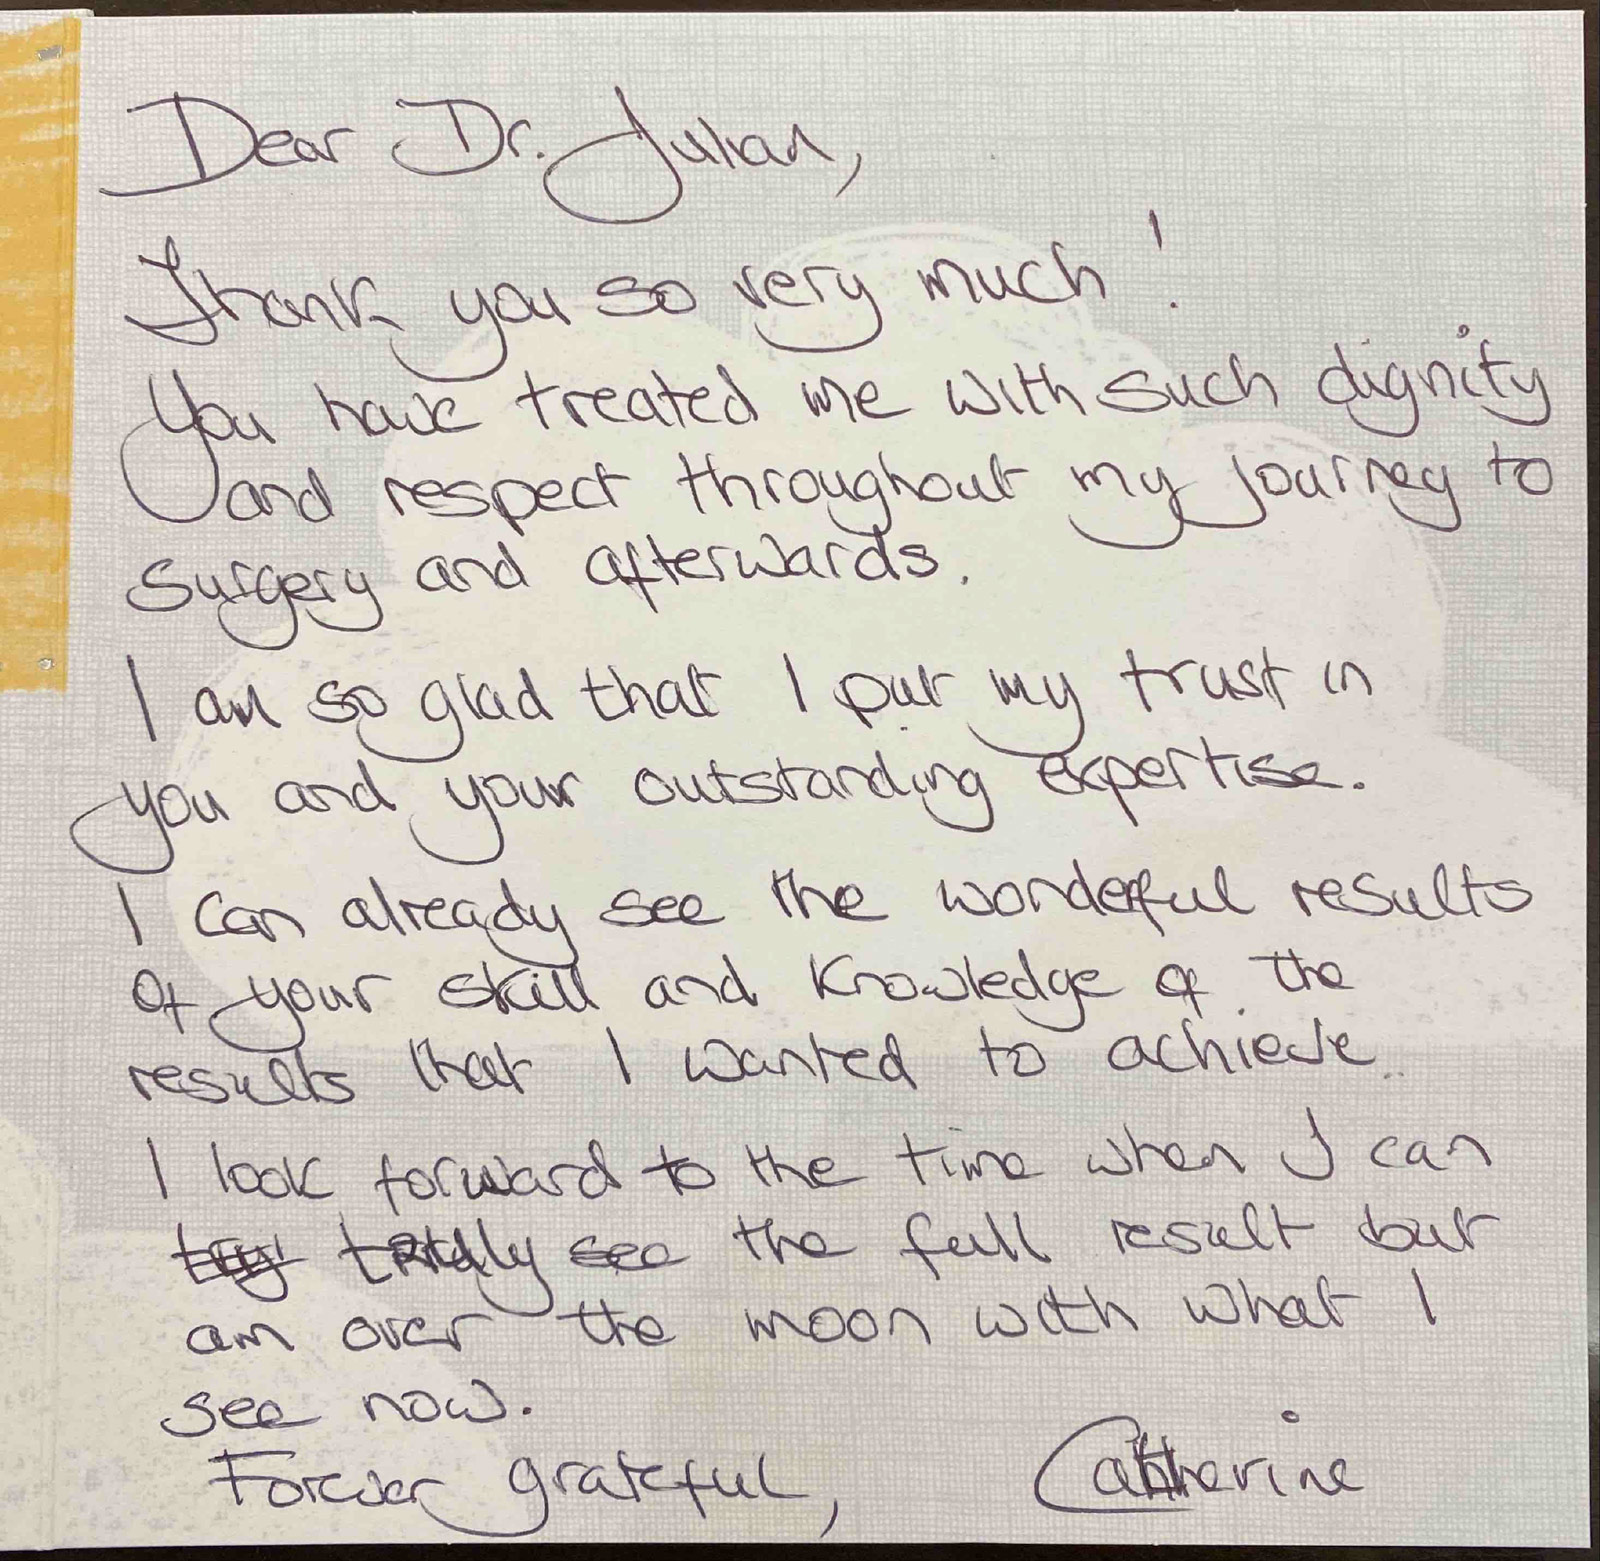 Dear Dr. Julian,
Thank you so very much!
You have treated me with such dignity
and respect throughout my journey to
surgery and afterwards.
I am so glad that I put my trust in
you and your outstanding expertise.
I can already see the wonderful results
of your skill and knowledge of the
results that I wanted to achieve..
I look forward to the time when I can
see the full result but
am over the moon with what I
see now.
Forever grateful,
Catherine